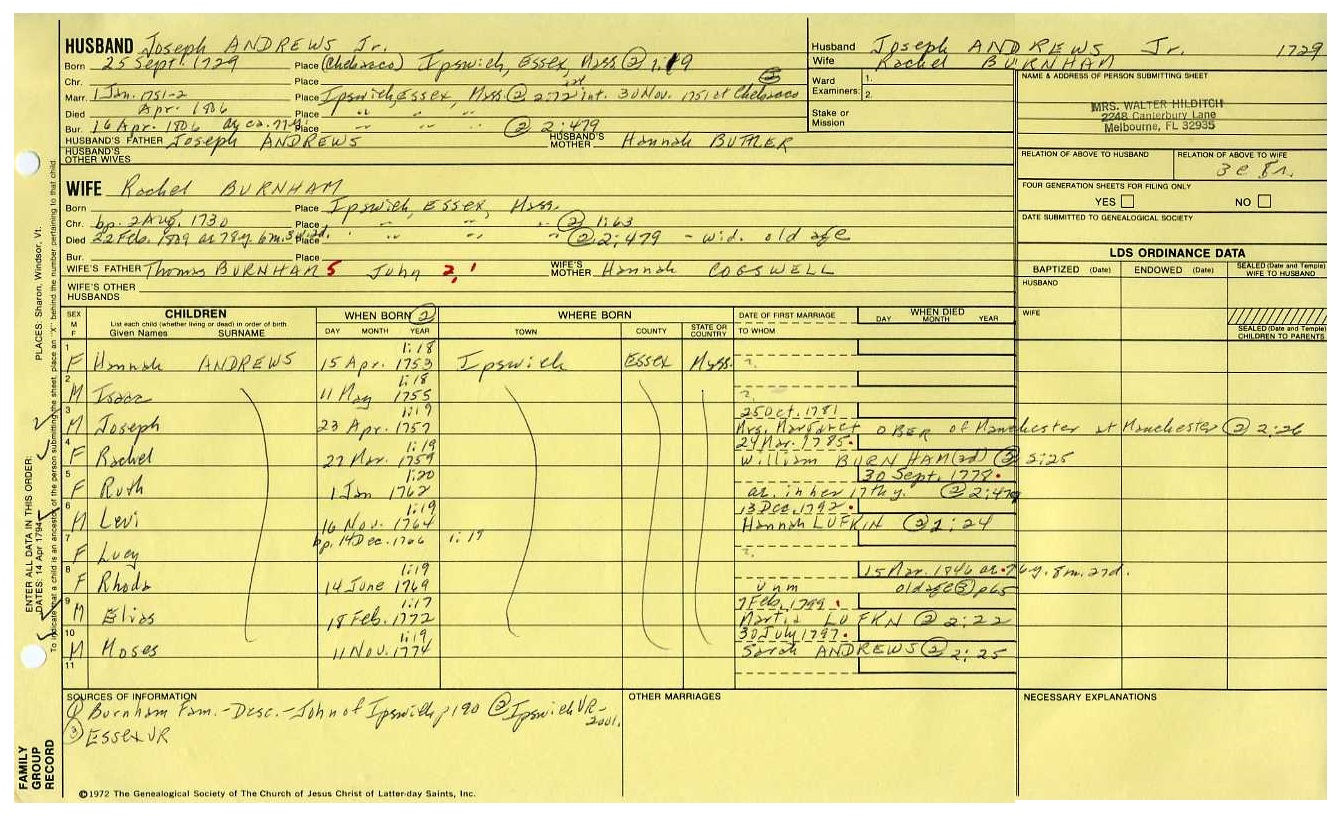 HUSBAND Joseph ANDREWS Jr.
Born 25 Sept. 1729 Place (Chebacco) Ipswich, Essex, Mass ② 1:19
Chr. Place
Marr. 1 Jan. 1751-2 Place Ipswich, Essex, Mass. ② 2:72 int. 30 Nov. 1751 at Chebacco ③
Died Apr. 1806 Place " " "
Bur. 16 Apr. 1806 ag ca. 77y. Place " " " ② 2:479
HUSBAND'S FATHER Joseph ANDREWS HUSBAND'S MOTHER Hannah BUTLER
HUSBAND'S OTHER WIVES
Husband Joseph ANDREWS Jr. 1729
Wife Rachel BURNHAM
Ward Examiners: 1.
2.
Stake or Mission
NAME & ADDRESS OF PERSON SUBMITTING SHEET
MRS. WALTER HILDITCH
2248 Canterbury Lane
Melbourne, FL 32935
RELATION OF ABOVE TO HUSBAND RELATION OF ABOVE TO WIFE
FOUR GENERATION SHEETS FOR FILING ONLY
YES NO
DATE SUBMITTED TO GENEALOGICAL SOCIETY
WIFE Rachel BURNHAM
Born Place Ipswich, Essex, Mass.
Chr. bp. 2 Aug. 1730 Place " " " ② 1:63
Died 22 Feb. 1809 ae 78y. 6m. Place " " " ② 2:479 - wid. old age
Bur. Place
WIFE'S FATHER Thomas BURNHAM 5 John 2, 1 WIFE'S MOTHER Hannah COGSWELL
WIFE'S OTHER HUSBANDS
LDS ORDINANCE DATA
BAPTIZED (Date) ENDOWED (Date) SEALED (Date and Temple) WIFE TO HUSBAND
HUSBAND
WIFE
SEALED (Date and Temple) CHILDREN TO PARENTS
SEX M F CHILDREN WHEN BORN ② WHERE BORN DATE OF FIRST MARRIAGE WHEN DIED
List each child (whether living or dead) in order of birth
Given Names SURNAME DAY MONTH YEAR TOWN COUNTY STATE OR COUNTRY TO WHOM DAY MONTH YEAR
1 1:18
F Hannah ANDREWS 15 Apr. 1753 Ipswich Essex Mass. ?
2 1:18
M Isaac 11 May 1755 ?
3 1:19 25 Oct. 1781
M Joseph 23 Apr. 1757 Mrs. Margaret OBER of Manchester at Manchester ② 2:26
4 1:19 24 Mar. 1785
F Rachel 27 Mar. 1759 William BURNHAM (3d) ② 2:25
5 1:20 30 Sept. 1778
F Ruth 1 Jan 1762 ae. in her 17th y. ② 2:479
6 1:19 13 Dec. 1792
M Levi 16 Nov. 1764 Hannah LUFKIN ② 2:24
7 bp. 14 Dec. 1766 1:19
F Lucy ?
8 1:19 15 Mar. 1846 ae. 76y. 8m. 27d.
F Rhoda 14 June 1769 unm old age ③ p65
9 1:17 7 Feb. 1799
M Elias 18 Feb. 1772 Martha LUFKN ② 2:22
10 1:19 30 July 1797
M Moses 11 Nov. 1774 Sarah ANDREWS ② 2:25
11
SOURCES OF INFORMATION
① Burnham Fam.-Desc.-John of Ipswich p190 ② Ipswich VR-
③ Essex VR
OTHER MARRIAGES
NECESSARY EXPLANATIONS
©1972 The Genealogical Society of The Church of Jesus Christ of Latter-day Saints, Inc.
FAMILY GROUP RECORD
ENTER ALL DATA IN THIS ORDER:
DATES: 14 Apr 1794
PLACES: Sharon, Windsor, Vt.
To indicate that a child is an ancestor of the person submitting the sheet, place an "X" behind the number pertaining to that child.